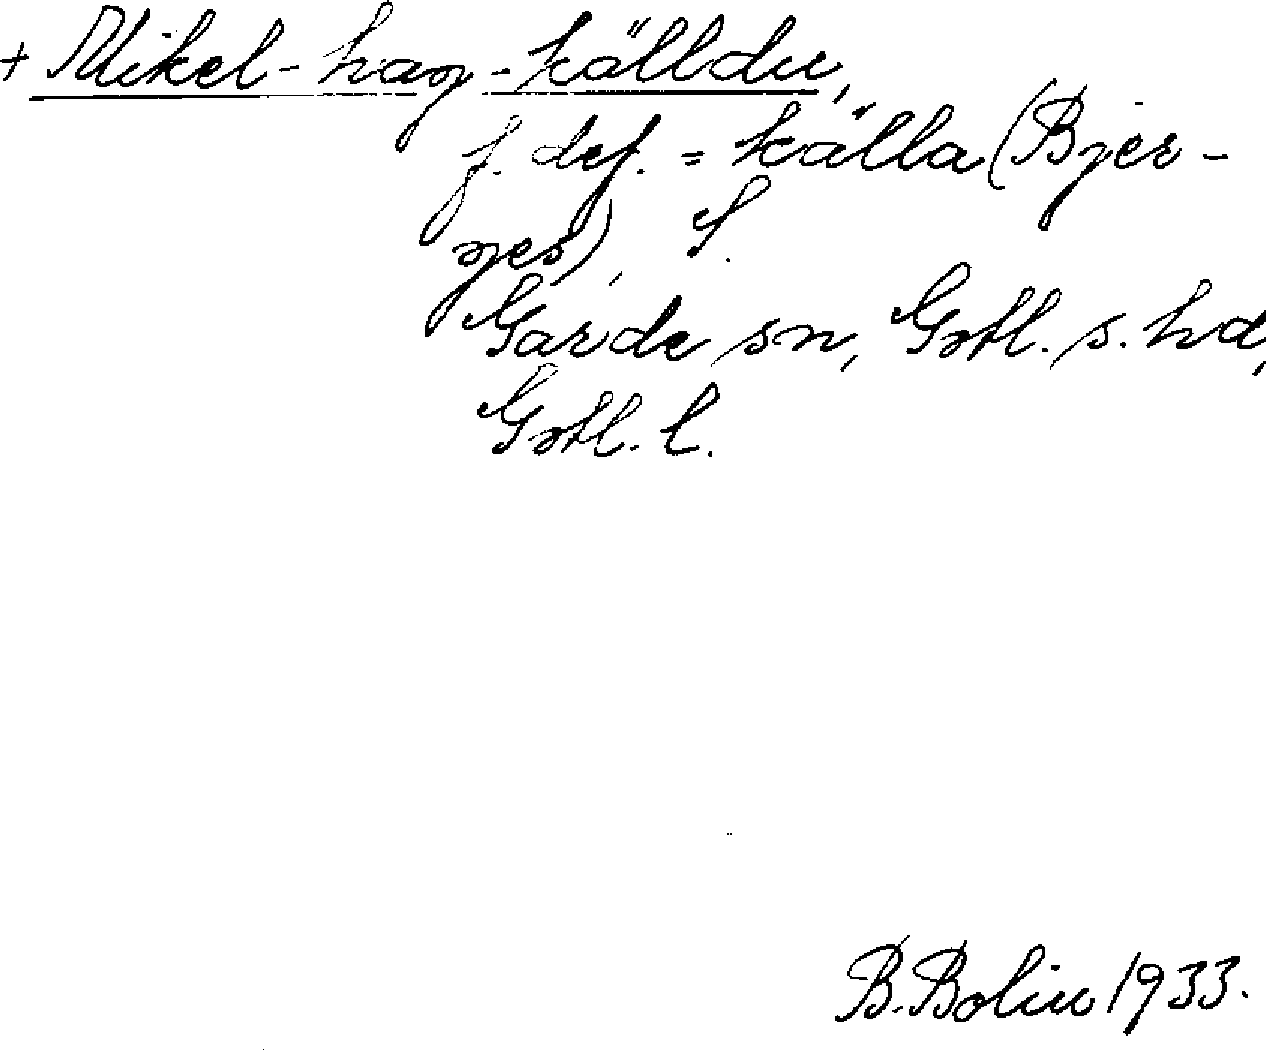 + Mikel-hag-källdu,
f. def. = källa (Bjer-
ges), S.
Garde sn, Gotl. s. hd,
Gotl. l.
B. Bolin 1933.